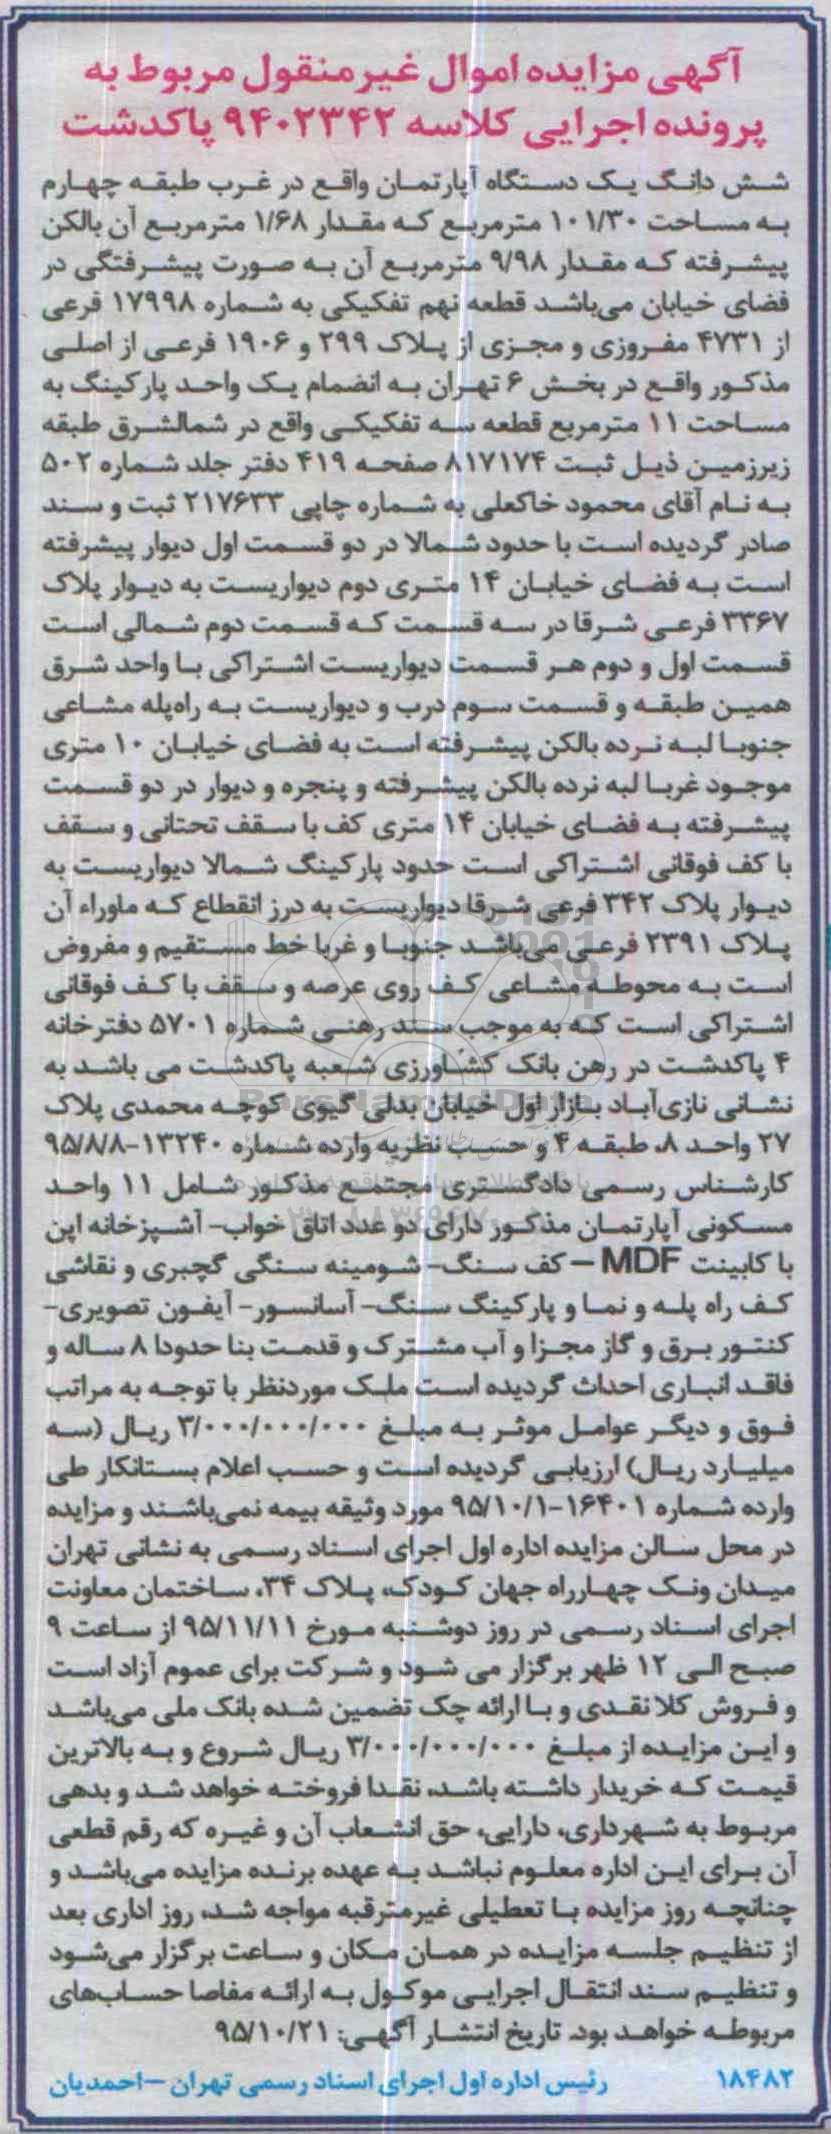 آگهی مزایده اموال غیرمنقول مربوط به
پرونده اجرایی کلاسه ۹۴۰۲۳۴۲ پاکدشت
شش دانگ یک دستگاه آپارتمان واقع در غرب طبقه چهارم
به مساحت ۱۰۱/۳۰ مترمربع که مقدار ۱/۶۸ مترمربع آن بالکن
پیشرفته که مقدار ۹/۹۸ مترمربع آن به صورت پیشرفتگی در
فضای خیابان می‌باشد قطعه نهم تفکیکی به شماره ۱۷۹۹۸ فرعی
از ۴۷۳۱ مفروزی و مجزی از پلاک ۲۹۹ و ۱۹۰۶ فرعی از اصلی
مذکور واقع در بخش ۶ تهران به انضمام یک واحد پارکینگ به
مساحت ۱۱ مترمربع قطعه سه تفکیکی واقع در شمالشرق طبقه
زیرزمین ذیل ثبت ۸۱۷۱۷۴ صفحه ۴۱۹ دفتر جلد شماره ۵۰۲
به نام آقای محمود خاکعلی به شماره چاپی ۲۱۷۶۳۳ ثبت و سند
صادر گردیده است با حدود شمالا در دو قسمت اول دیوار پیشرفته
است به فضای خیابان ۱۴ متری دوم دیواریست به دیوار پلاک
۳۳۶۷ فرعی شرقا در سه قسمت که قسمت دوم شمالی است
قسمت اول و دوم هر قسمت دیواریست اشتراکی با واحد شرق
همین طبقه و قسمت سوم درب و دیواریست به راه‌پله مشاعی
جنوبا لبه نرده بالکن پیشرفته است به فضای خیابان ۱۰ متری
موجود غربا لبه نرده بالکن پیشرفته و پنجره و دیوار در دو قسمت
پیشرفته به فضای خیابان ۱۴ متری کف با سقف تحتانی و سقف
با کف فوقانی اشتراکی است حدود پارکینگ شمالا دیواریست به
دیوار پلاک ۳۴۲ فرعی شرقا دیواریست به درز انقطاع که ماوراء آن
پلاک ۲۳۹۱ فرعی می‌باشد جنوبا و غربا خط مستقیم و مفروض
است به محوطه مشاعی کف روی عرصه و سقف با کف فوقانی
اشتراکی است که به موجب سند رهنی شماره ۵۷۰۱ دفترخانه
۴ پاکدشت در رهن بانک کشاورزی شعبه پاکدشت می باشد به
نشانی نازی‌آباد بازار اول خیابان بدلی گیوی کوچه محمدی پلاک
۲۷ واحد ۸، طبقه ۴ و حسب نظریه وارده شماره ۱۳۲۴۰-۹۵/۸/۸
کارشناس رسمی دادگستری مجتمع مذکور شامل ۱۱ واحد
مسکونی آپارتمان مذکور دارای دو عدد اتاق خواب- آشپزخانه اپن
با کابینت MDF - کف سنگ- شومینه سنگی گچبری و نقاشی
کف راه پله و نما و پارکینگ سنگ- آسانسور- آیفون تصویری-
کنتور برق و گاز مجزا و آب مشترک و قدمت بنا حدودا ۸ ساله و
فاقد انباری احداث گردیده است ملک موردنظر با توجه به مراتب
فوق و دیگر عوامل موثر به مبلغ ۳/۰۰۰/۰۰۰/۰۰۰ ریال (سه
میلیارد ریال) ارزیابی گردیده است و حسب اعلام بستانکار طی
وارده شماره ۱۶۴۰۱-۹۵/۱۰/۱ مورد وثیقه بیمه نمی‌باشند و مزایده
در محل سالن مزایده اداره اول اجرای اسناد رسمی به نشانی تهران
میدان ونک چهارراه جهان کودک، پلاک ۳۴، ساختمان معاونت
اجرای اسناد رسمی در روز دوشنبه مورخ ۹۵/۱۱/۱۱ از ساعت ۹
صبح الی ۱۲ ظهر برگزار می شود و شرکت برای عموم آزاد است
و فروش کلا نقدی و با ارائه چک تضمین شده بانک ملی می‌باشد
و این مزایده از مبلغ ۳/۰۰۰/۰۰۰/۰۰۰ ریال شروع و به بالاترین
قیمت که خریدار داشته باشد، نقدا فروخته خواهد شد و بدهی
مربوط به شهرداری، دارایی، حق انشعاب آن و غیره که رقم قطعی
آن برای این اداره معلوم نباشد به عهده برنده مزایده می‌باشد و
چنانچه روز مزایده با تعطیلی غیرمترقبه مواجه شد، روز اداری بعد
از تنظیم جلسه مزایده در همان مکان و ساعت برگزار می‌شود
و تنظیم سند انتقال اجرایی موکول به ارائه مفاصا حساب‌های
مربوطه خواهد بود. تاریخ انتشار آگهی: ۹۵/۱۰/۲۱
۱۸۴۸۲ رئیس اداره اول اجرای اسناد رسمی تهران -احمدیان
ParsNamadData